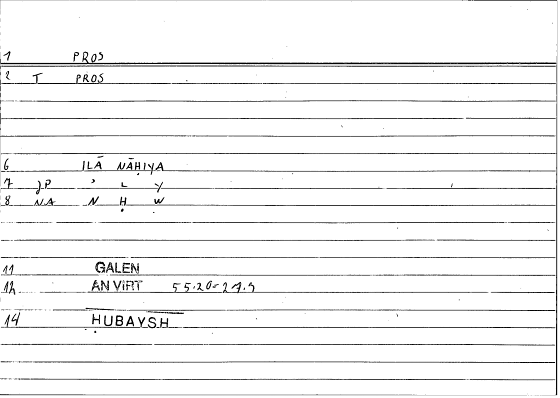 1 PROS
2 T PROS
6 ILĀ NĀḤIYA
7 JP ʾ L Y
8 NA N Ḥ W
11 GALEN
12 AN VIRT
14 ḤUBAYSH